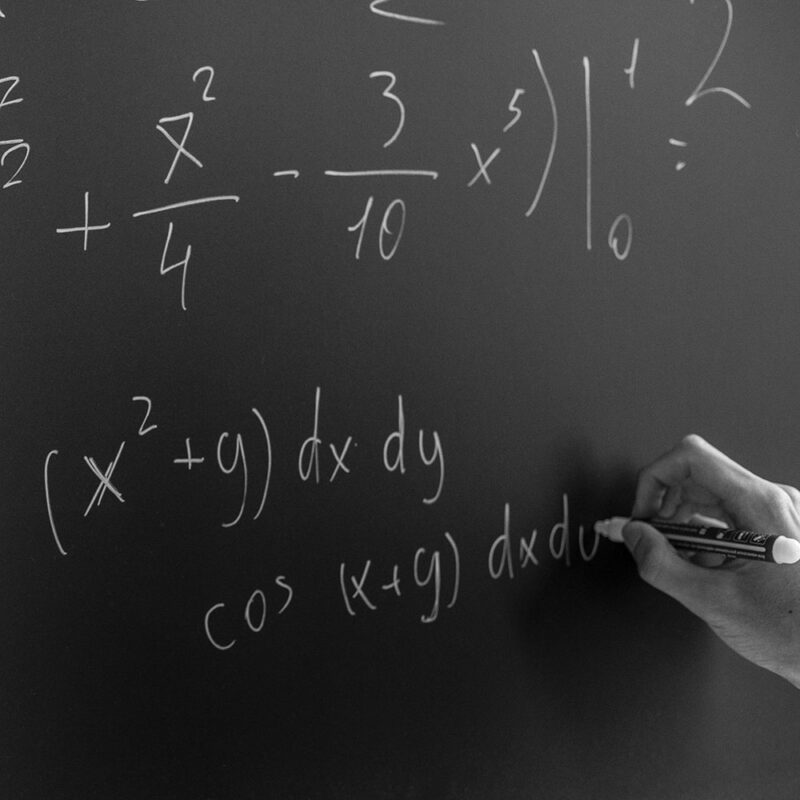 2/2 + x²/4 - 3/10 x⁵)|₀¹ = 2
(x² + y) dx dy
cos (x+y) dx dy